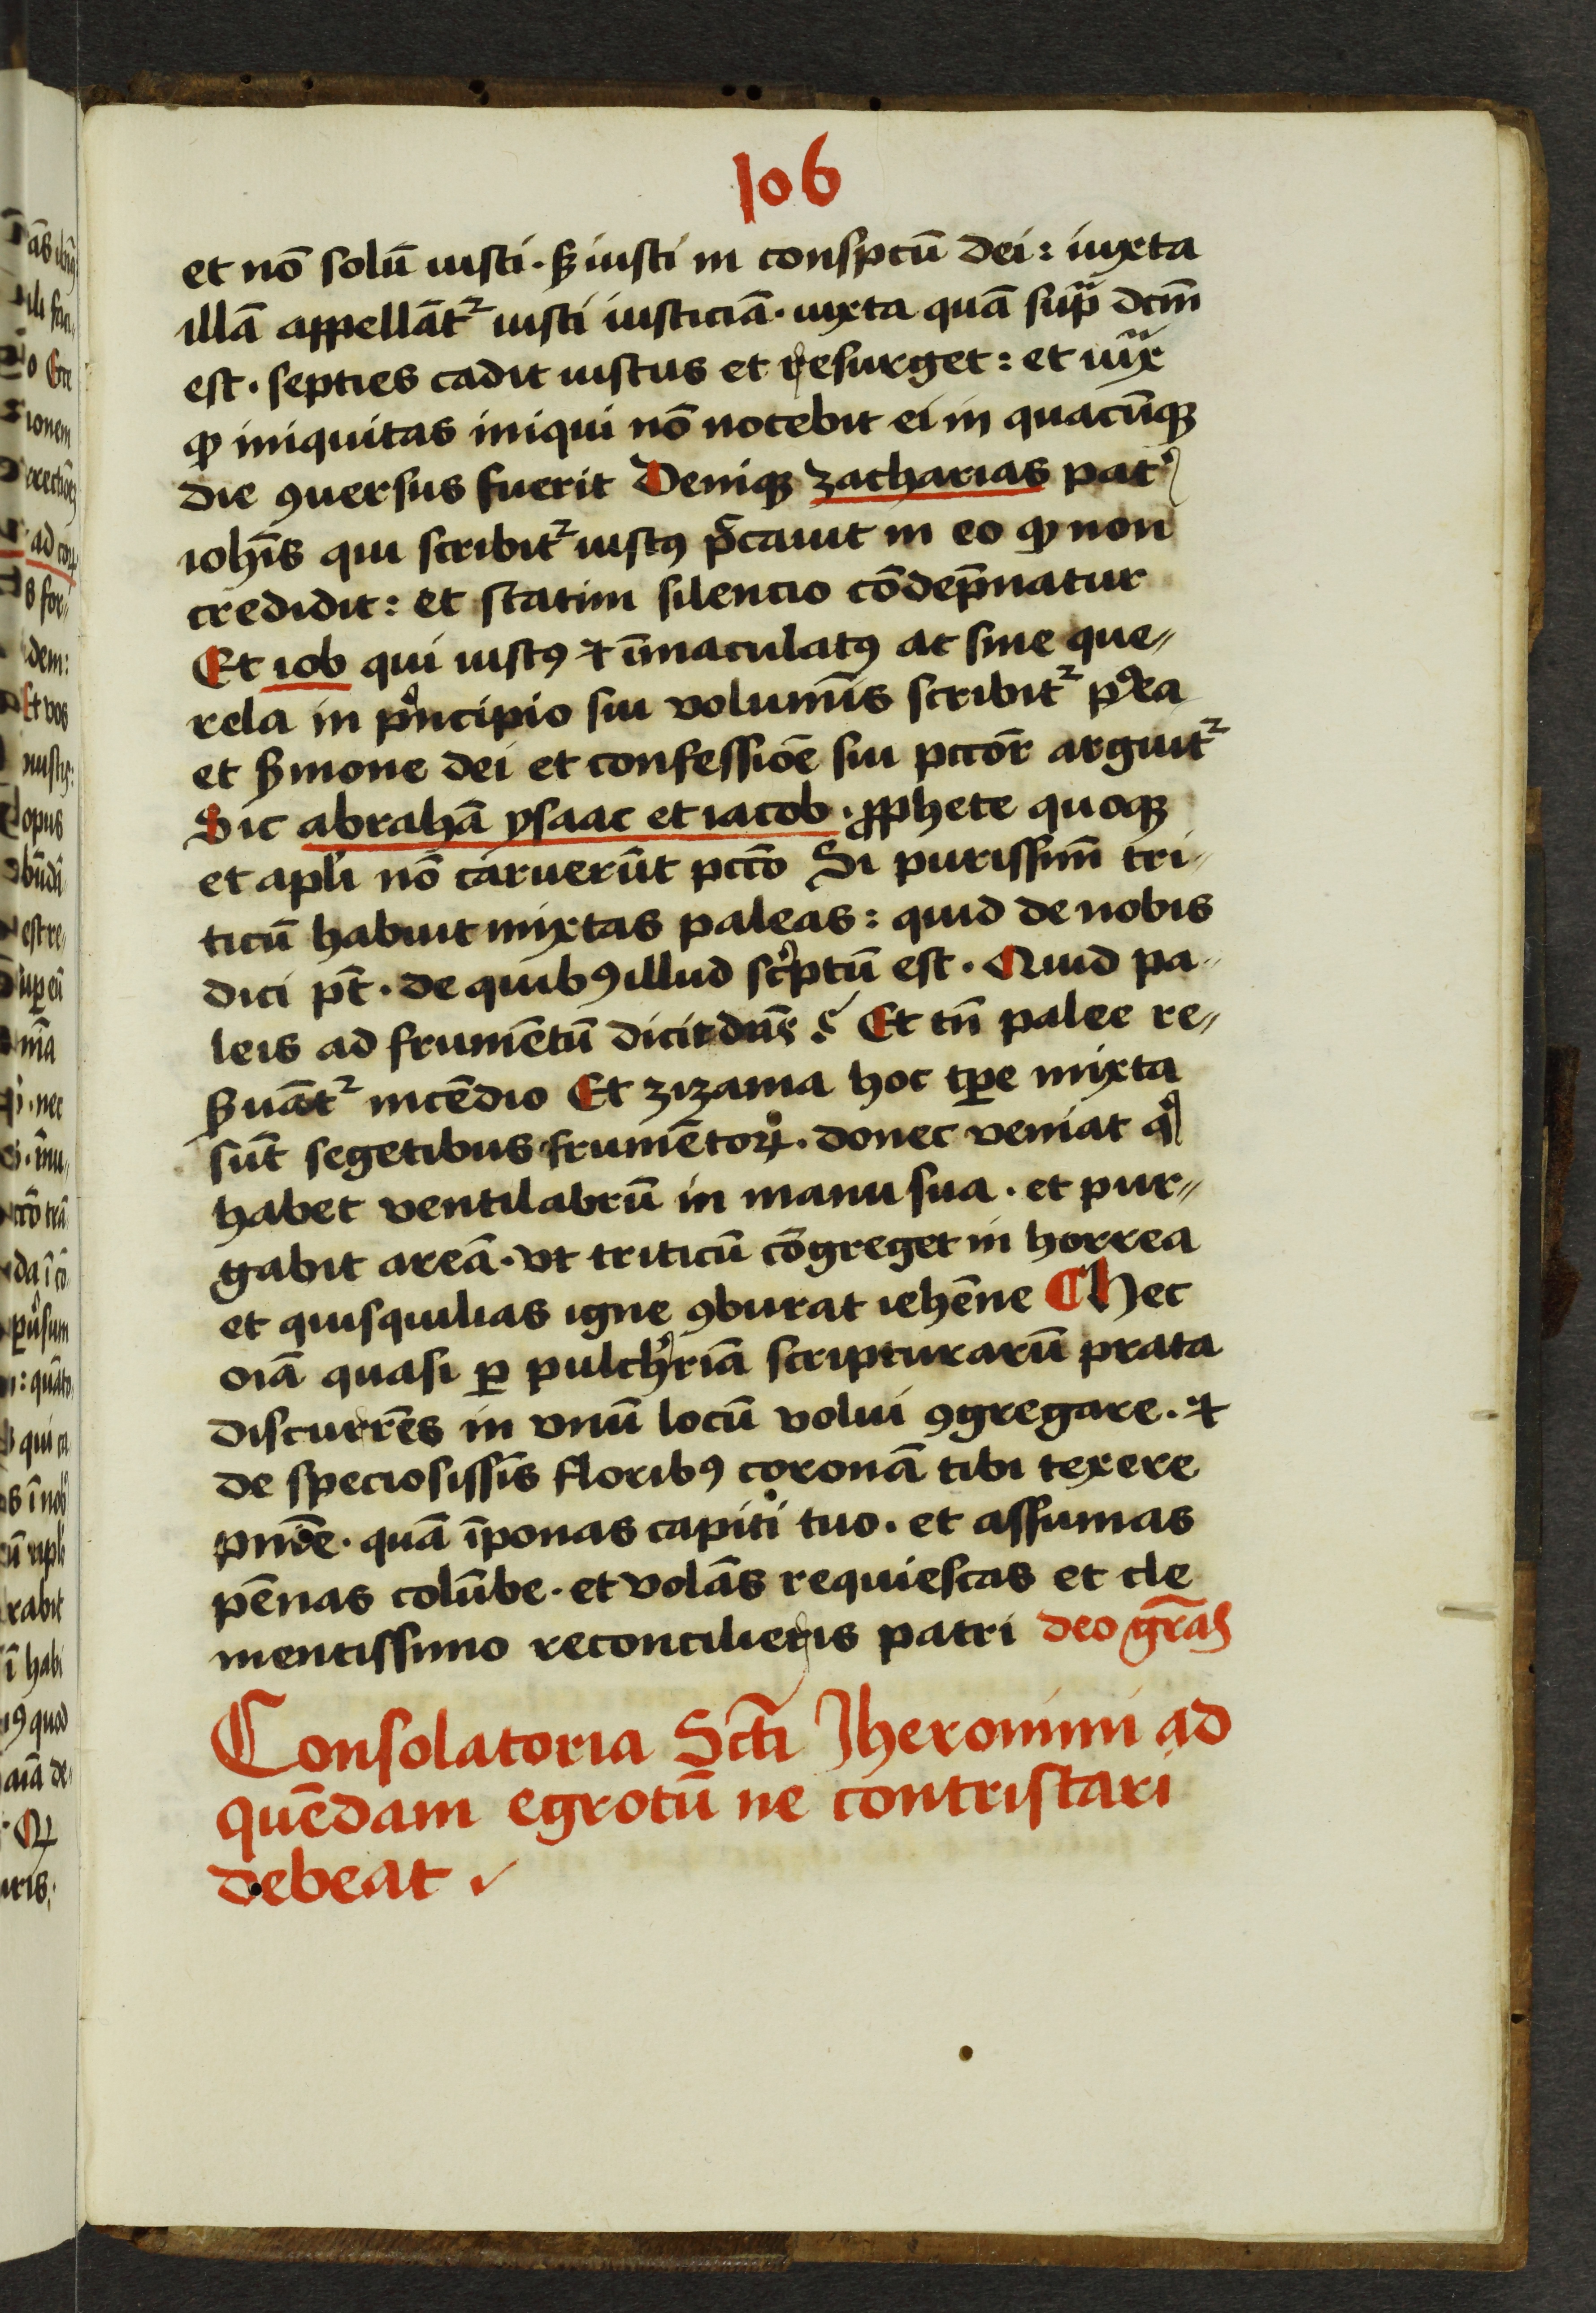 106
et nō solū iusti · ꝭ iusti in conspctū dei : iuxta
illā appellāt᷑ iusti iusticiā · iuxta quā supͣ dcm̄
est · septies cadit iustus et resurget : et iuxͣ
ꝙ iniquitas iniqui nō nocebit ei in quacūqꝫ
die ꝯuersus fuerit Deniqꝫ zacharias pat᷑
ioh̄is qui scribit᷑ iustꝰ p̄cauit in eo ꝙ non
credidit : et statim silencio cōdep̄natur
Et iob qui iustꝰ ⁊ īmaculatꝰ ac sine que〃
rela in pͥncipio sui volumīs scribit᷑ pꝰea
et ẜmone dei et confessiōe sui pccōr arguit᷑
Sic abrahā ysaac et iacob · ꝓphete quoqꝫ
et apl̄i nō caruerūt pccō Si purissim̄ tri〃
ticū habuit mixtas paleas : quid de nobis
dici pt̄ · de quibꝰ illud scͥptū est · Quid pa〃
leis ad frumētū dicit dn̄s ? Et tn̄ palee re〃
ẜuāt᷑ incēdio Et zizania hoc tp̄e mixta
sūt segetibus frumētoꝝ · donec veniat qͥ
habet ventilabrū in manu sua · et pur〃
gabit areā · vt triticū cōgreget in horrea
et quisquilias igne ꝯburat iehēne ¶ Hec
oīa quasi ꝑ pulch᷑riā scripturarū prata
discurrēs in vnū locū volui ꝯgregare · ⁊
de speciosissīs floribꝰ coronā tibi texere
pn̄īe · quā īponas capiti tuo · et assumas
pēnas colūbe · et volās requiescas et cle
mentissimo reconcilieris patri deo gr̄as
Consolatoria Scti Jheronimi ad
quēdam egrotū ne contristari
debeat ·